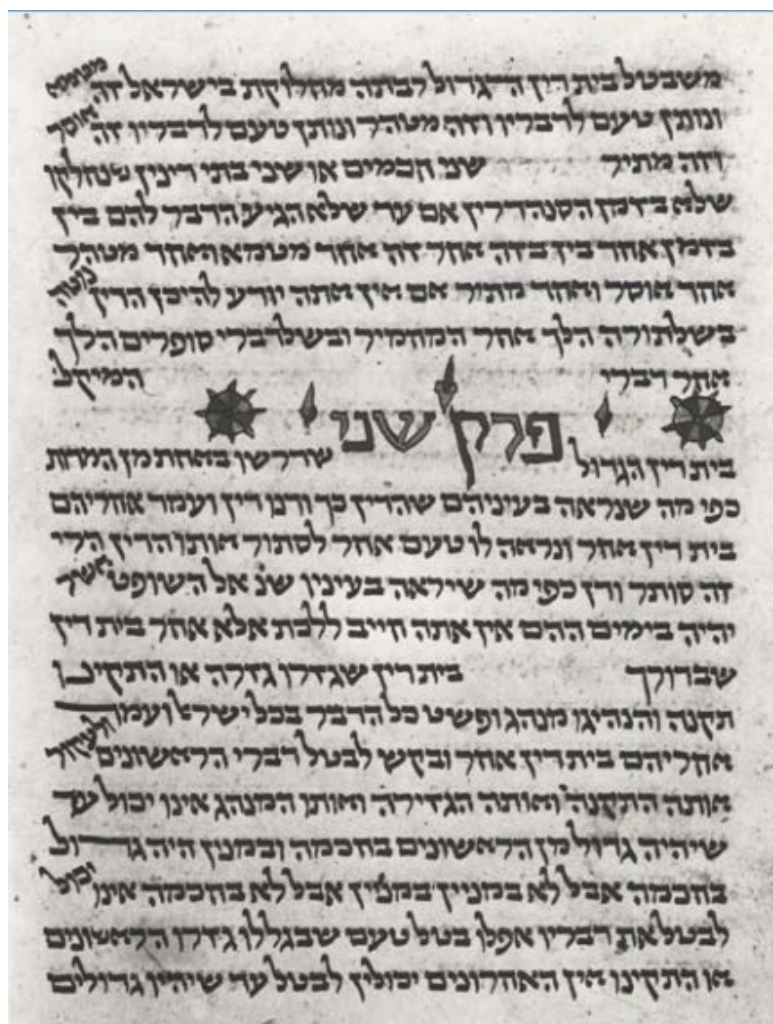 משבטל בית דין הגדול רבתה מחלוקת בישראל זה מטמא
ונותן טעם לדבריו וזה מטהר ונותן טעם לדבריו זה אוסר
וזה מתיר שני חכמים או שני בתי דינין שנחלקו
שלא בזמן הסנהדרין אם עד שלא הגיע הדבר להם בין
בזמן אחד בין בזה אחר זה אחד מטמא ואחד מטהר
אחד אוסר ואחד מתיר אם אין אתה יודע להיכן הדין נוטה
בשלתורה הלך אחר המחמיר ובשלדברי סופרים הלך
אחר דברי המיקל
פרק שני
בית דין הגדול שדרשו באחת מן המדות
כפי מה שנראה בעיניהם שהדין כך ודנו דין ועמד אחריהם
בית דין אחר ונראה לו טעם אחר לסתור אותו הדין הרי
זה סותר ודן כפי מה שיראה בעיניו שנ אל השופט אשר
יהיה בימים ההם אין אתה חייב ללכת אלא אחר בית דין
שבדורך בית דין שגזרו גזרה או התקינו
תקנה והנהיגו מנהג ופשט כל הדבר בכל ישרא ועמד
אחריהם בית דין אחר ובקש לבטל דברי הראשונים ולעקור
אותה התקנה ואותה הגזירה ואותו המנהג אינו יכול עד
שיהיה גדול מן הראשונים בחכמה ובמנין היה גדול
בחכמה אבל לא במניין במניין אבל לא בחכמה אינו יכול
לבטל את דבריו אפלו בטל טעם שבגללו גזרו הראשונים
או התקינו אין האחרונים יכולין לבטל עד שיהיו גדולים